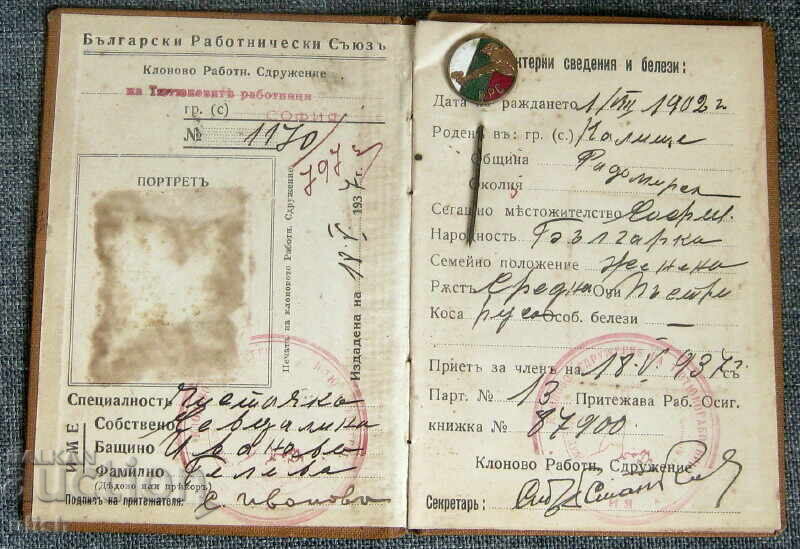 Български Работнически Съюзъ
Клоново Работн. Сдружение
на Тютюневитѣ работници
гр. (с) СОФИЯ
№ 1170/
ПОРТРЕТЪ
Печатъ на клоновото Работн. Сдружение
Издадена на 18.V 1937 г.
Специалность
ИМЕ
Собствено Севдалина
Бащино Иванова
Фамилно Гелева
(Дѣдово или прѣкоръ)
Подпись на притежателя: С Иванова
БРС
ктерни сведения и белези:
Дата на раждането 1/VIII 1902 г
Роденъ въ: гр. (с.) Калище
Община
Околия Радомирска
Сегашно мѣстожителство София
Народность Българка
Семейно положение Женена
Ръстъ Средна Очи Пъстри
Коса руса Особ. белези —
Приетъ за членъ на 18.V 937 г. съ
Парт. № 13 Притежава Раб. Осиг.
книжка № 87900.
Клоново Работн. Сдружение
Секретарь: